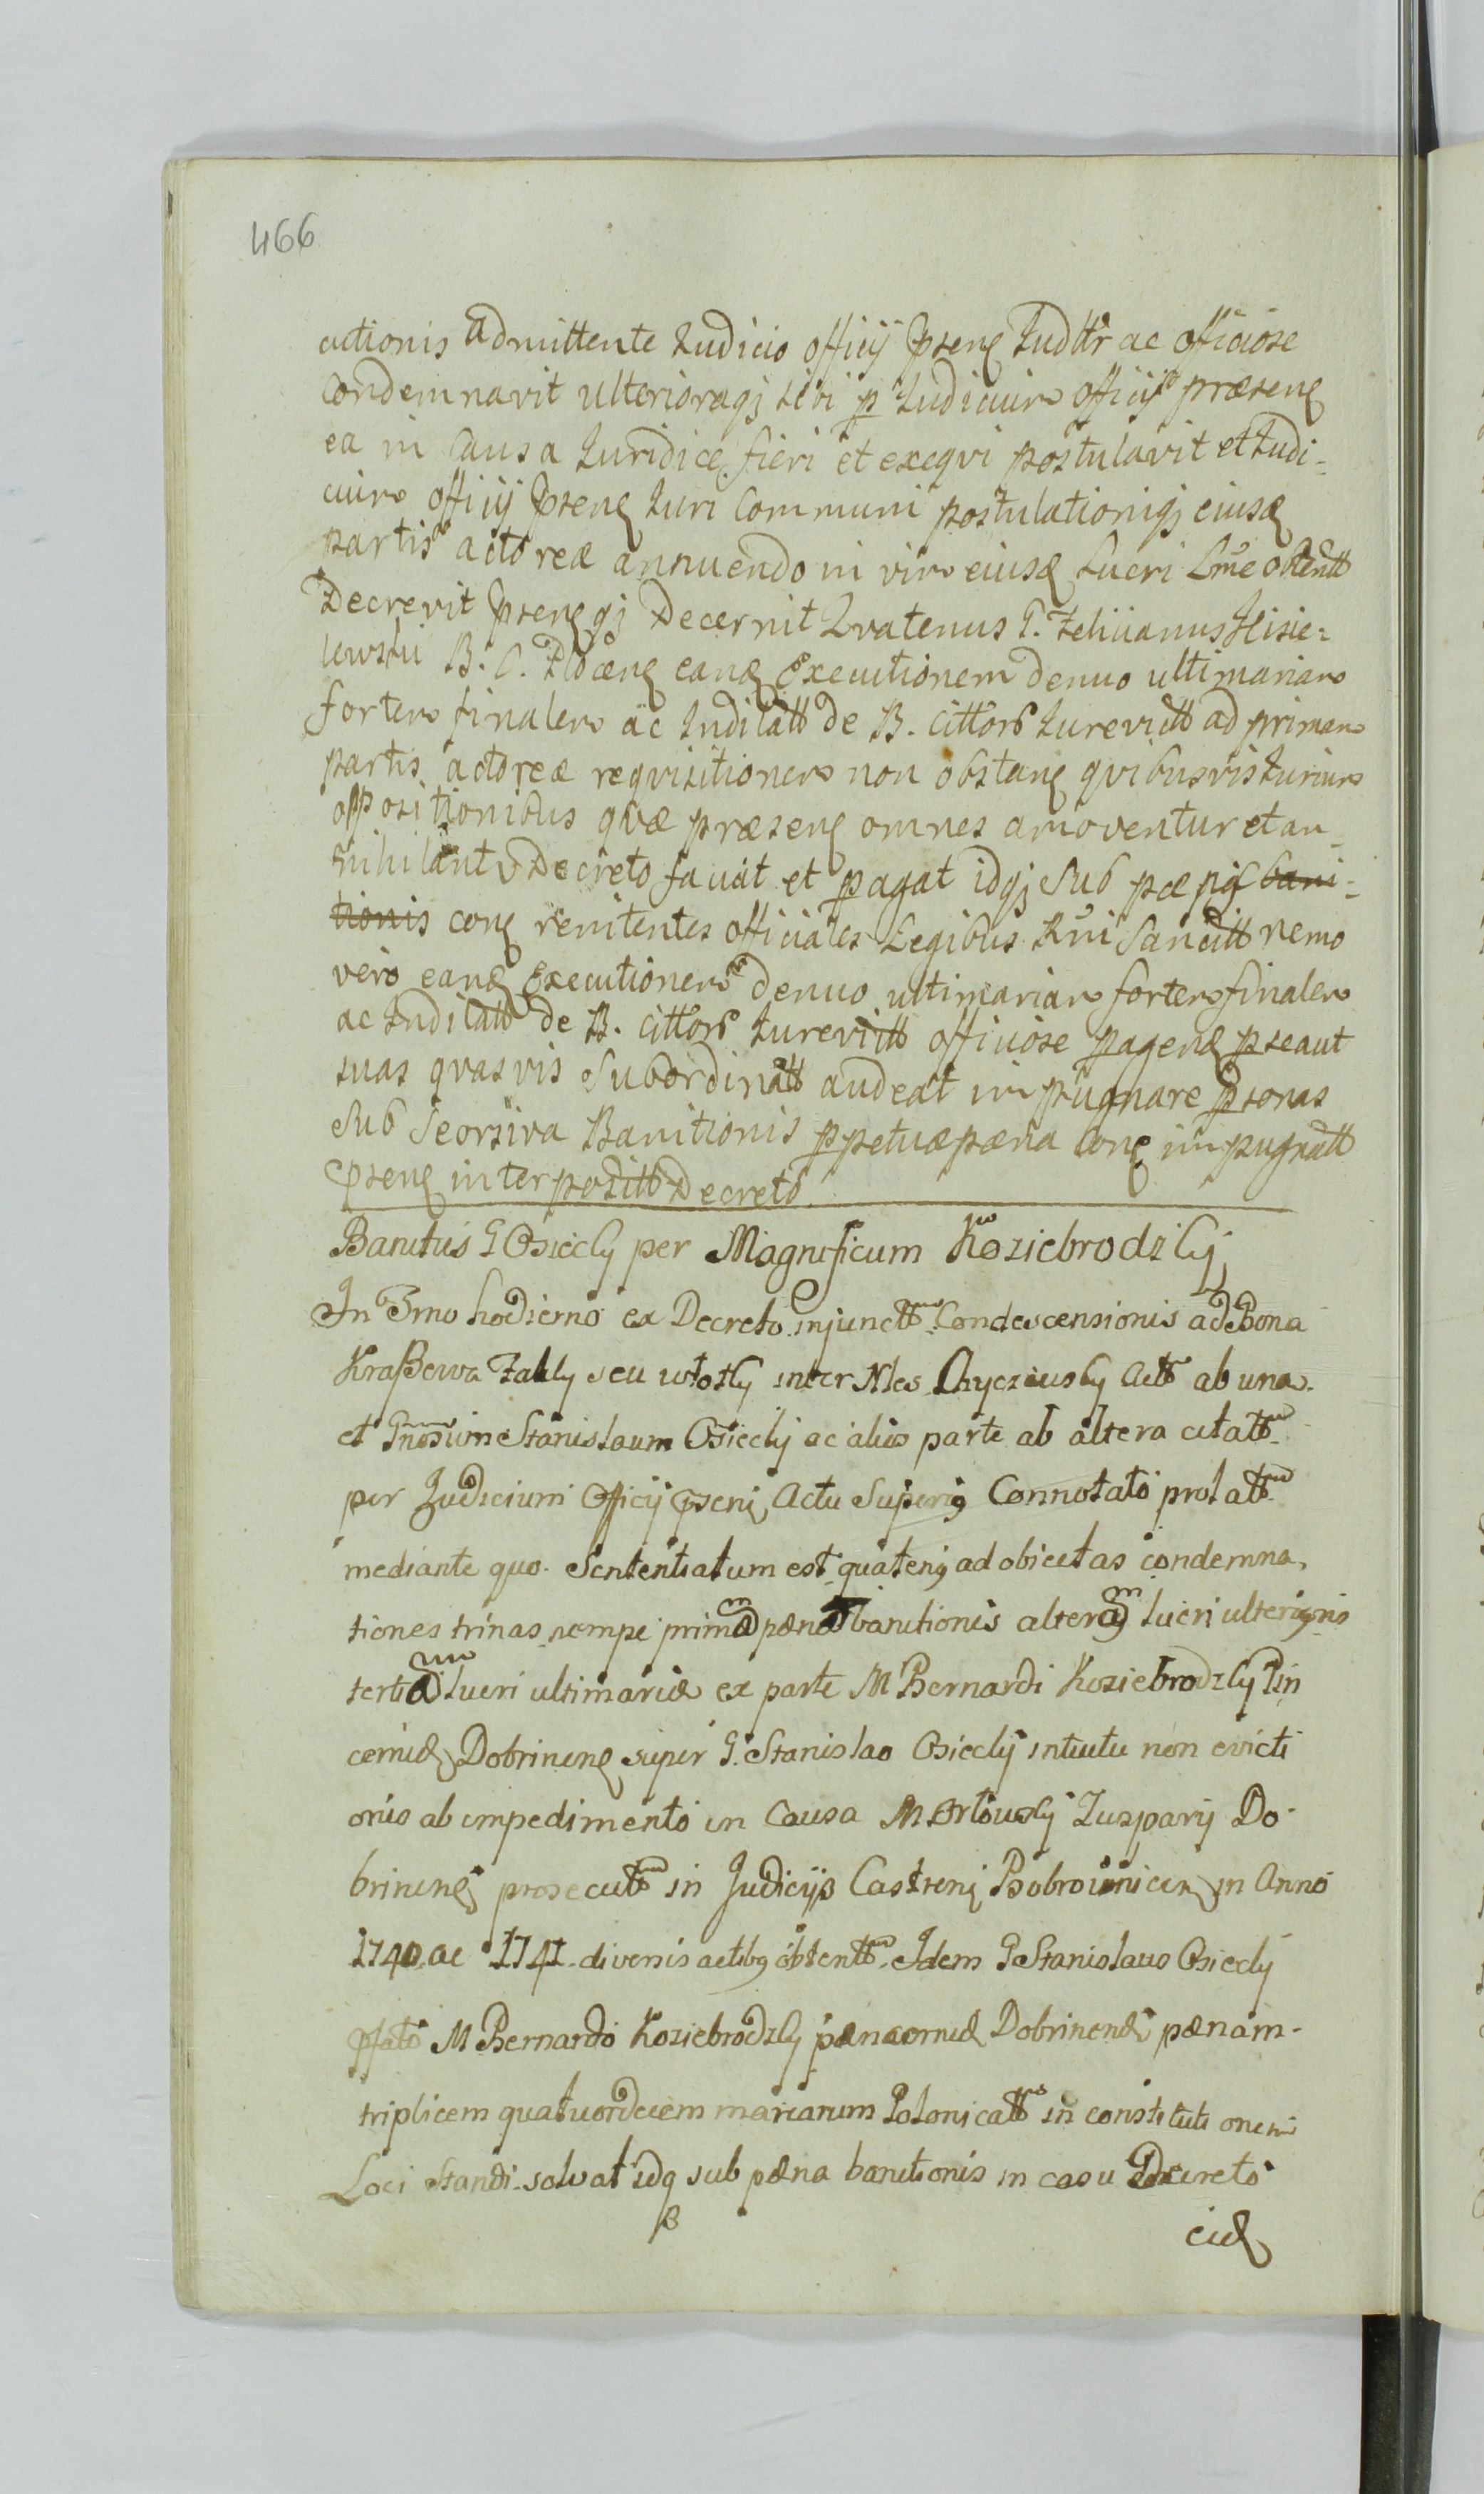 466
utionis admittente Iudicio officij pseng Iudttr ac officiose
Condemnavit ulterioraqj sibi p Iudicium officij præseng
ea in Causa Iuridice fieri et exeqvi postulavit et Iudi-
cium officij pseng Iuri Communi postulationiqj eiusd
partis actoreæ annuendo in vim eiusd Lucri Lme obtentt
Decrevit psengqj Decernit Qvatenus G. Felicianus
B. C. eand Executionem denuo ultimariam
fortem finalem ac Indilatt de B. Cittors Iurevictt ad primam
partis actoreæ reqvisitionem non obstang qvibusvis Iurium
oppositionibus qvæ præseng omnes amoventur et an-
nihilantr Decreto faciat et pagat idqj Sub pæng bani-
tionis cong renitentes officiales Legibus Rni Sancitt nemo
vero eand Executionem denuo ultimariam fortem finalem
ac Indilatt de B. Cittors Iurevictt officiose pagend pseaut
suas qvasvis Subordinatt audeat impugnare psonas
Sub Seorsiva Banitionis ppetuæ pæna Cong impugnatt
pseng interpozitt Decreto.
Banitus G Osiecky per Magnificum Koziebrodzky
In Trno hodierno ex Decreto injunctt Condescensionis ad Bona
Kraßewa seu inter Nles actt ab una
et Gnosum Stanislaum Osiecky ac alius parte ab altera citatt
per Judicium Officij pseng Actu Superig Connotato prolatt
mediante quo Sententiatum est quateng ad obiectas condemna-
tiones trinas nempe primam pænæ banitionis alteram lucri ulterioris
tertiam lucri ultimariæ ex parte M Bernardi Koziebrodzky Pin
cernæ Dobrineng super G. Stanislao Osiecky intuitu non evicti
onis ab impedimento in Causa M Do-
brineng prosecutt in Judicijs Castreng Bobrownicen in Anno
1740 ac 1741 diversis actibg obtentt Idem G Stanislaus Osiecky
pfato M Bernardo Koziebrodzky Dobrinend pænam
triplicem quatuordecem marcarum Polonicatt in constitutionem
Loci Standi solvat idq sub pæna banitionis in casu Decreto
eid